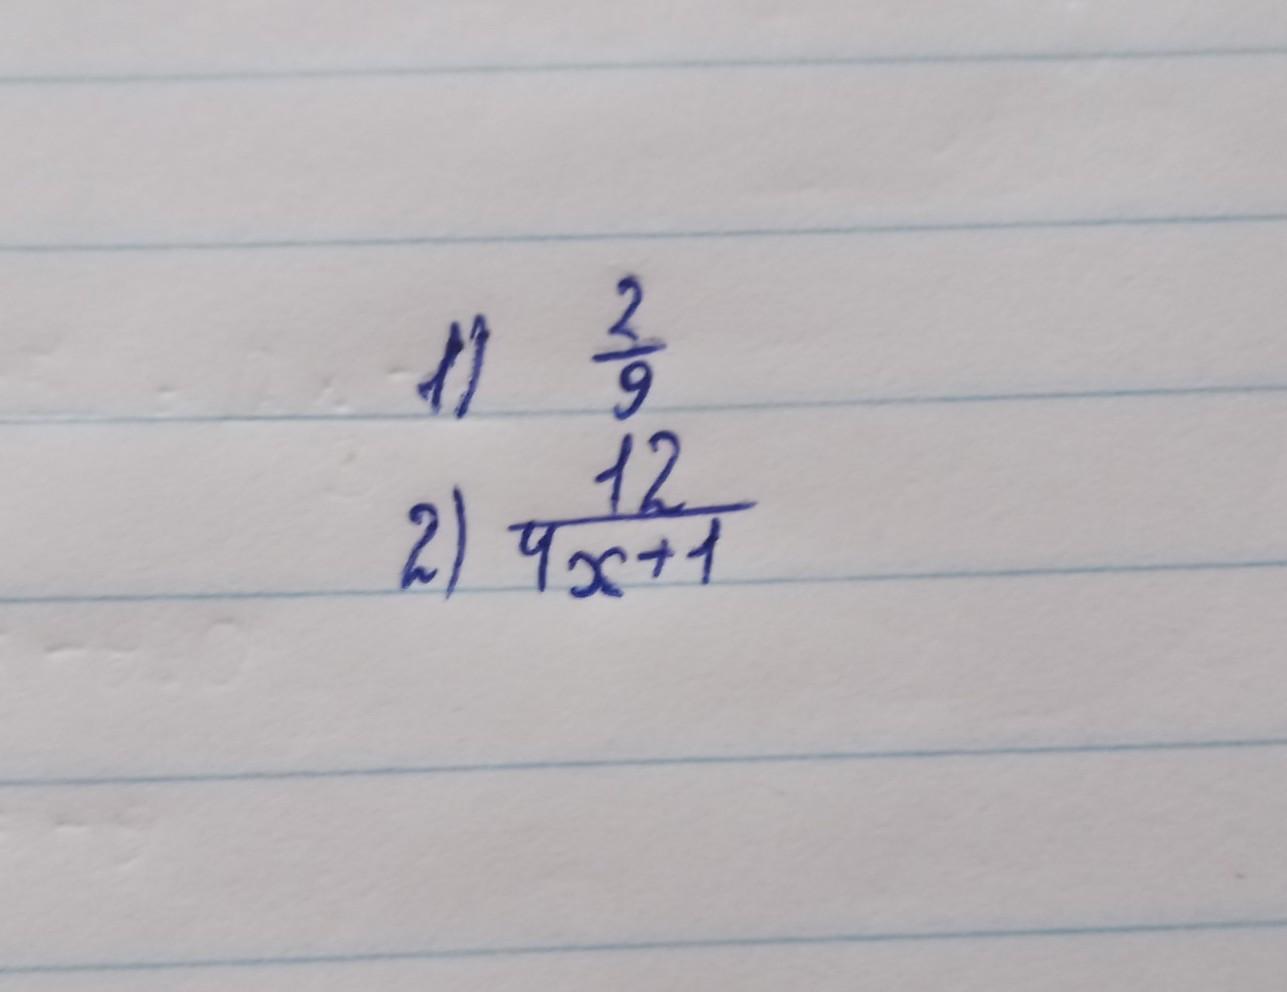 1) 2/9
2) 12/(4x+1)